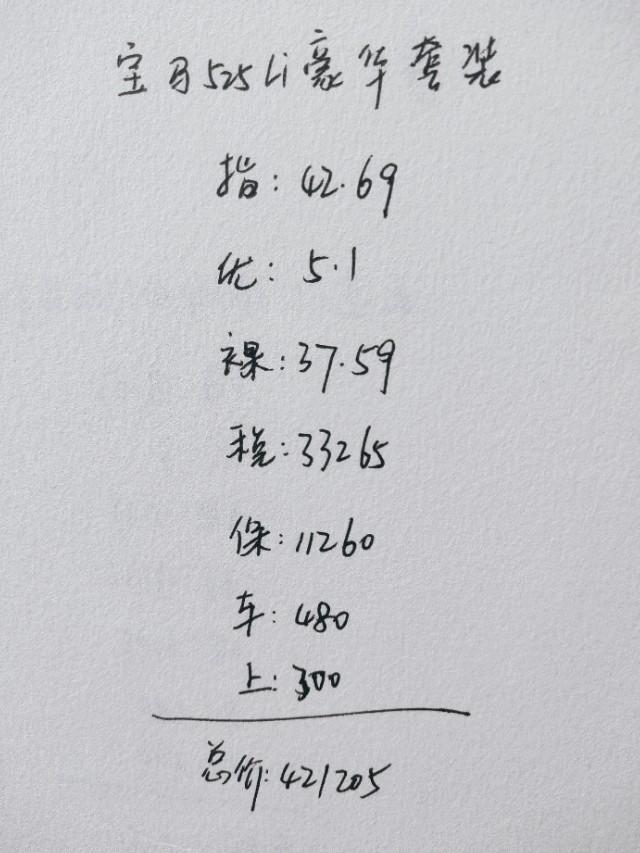 宝马525Li豪华套装
指:42.69
优:5.1
裸:37.59
税:33265
保:11260
车:480
上:300
总价:421205